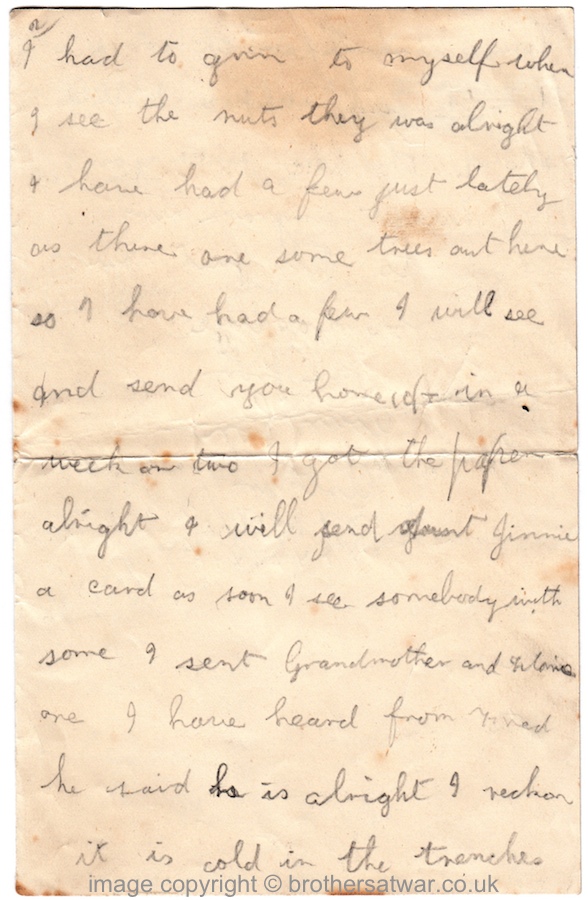 2
I had to grin to myself when
I see the nuts they was alright
I have had a few just lately
as there are some trees out here
so I have had a few I will see
and send you home 10/- in a
week or two I got the paper
alright I will send Aunt Jinnie
a card as soon I see somebody with
some I sent Grandmother and
one I have heard from
he said he is alright I reckon
it is cold in the trenches
image copyright © brothersatwar.co.uk